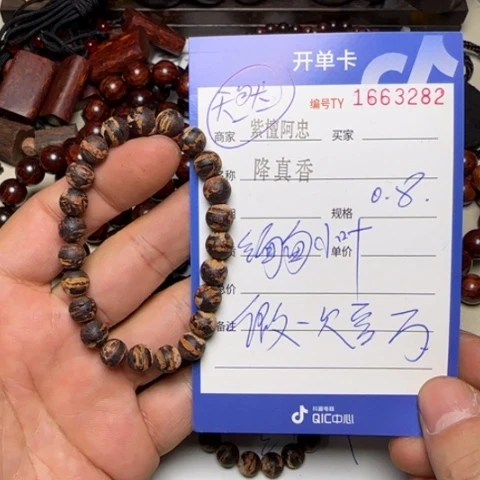 开单卡
天然
编号TY 1663282
商家 紫檀阿忠 买家
名称 降真香
规格 0.8.
缅甸小叶 单价
备注 假一次赔万
抖音电商
QIC中心